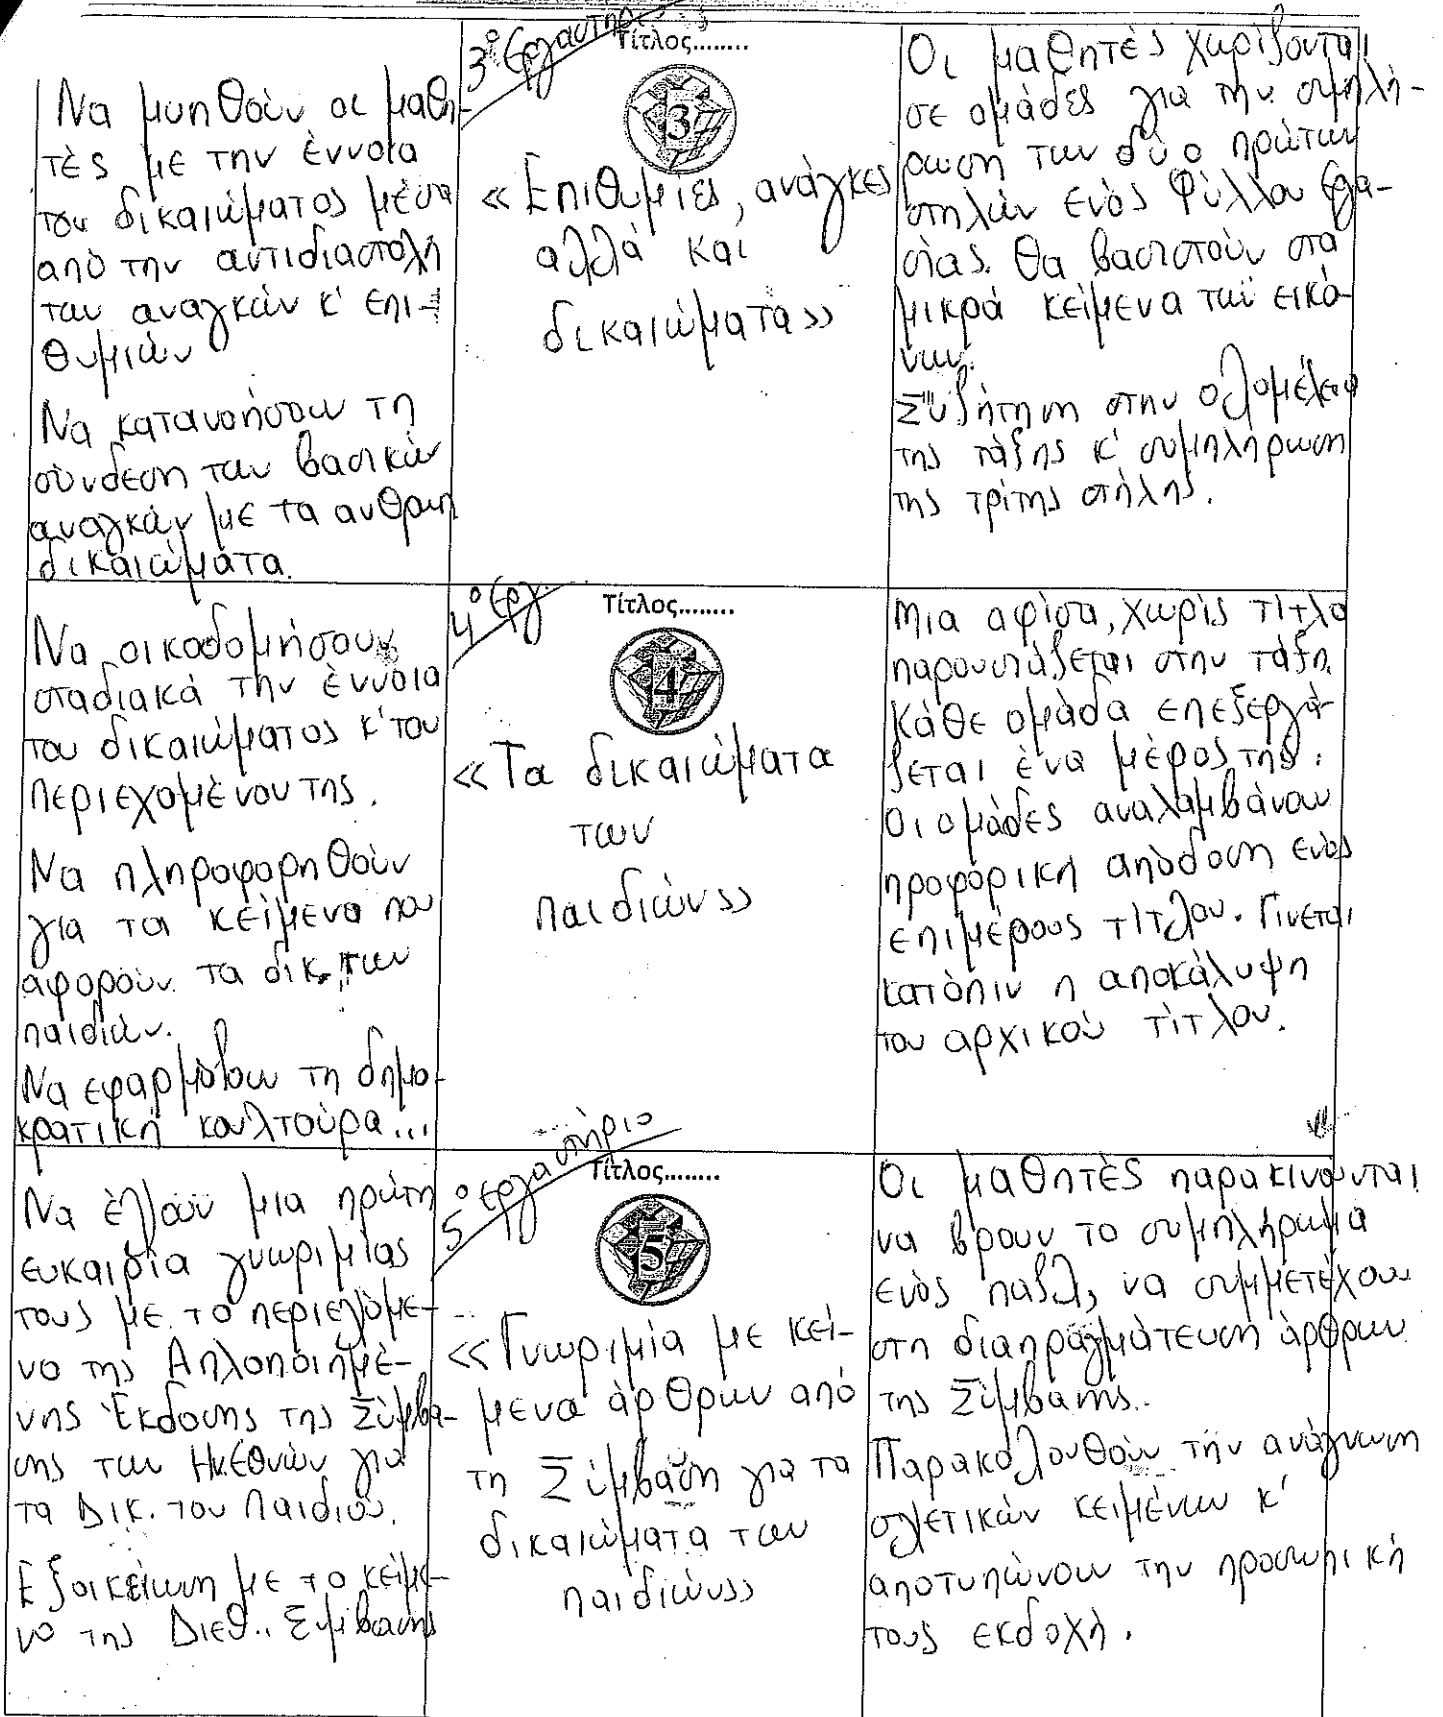 Να μυηθούν οι μαθη-
τές με την έννοια
του δικαιώματος μέσα
από την αντιδιαστολή
των αναγκών κ' επι-
θυμιών
Να κατανοήσουν τη
σύνδεση των βασικών
αναγκών με τα ανθρωπ
δικαιώματα.
3ο Εργαστήριο
Τίτλος........
3
«Επιθυμίες, ανάγκες
αλλά και
δικαιώματα»
Οι μαθητές χωρίζονται
σε ομάδες για την συμπλή-
ρωση των δύο πρώτων
στηλών ενός Φύλλου Εργα-
σίας. Θα βασιστούν στα
μικρά κείμενα των εικό-
νων.
Συζήτηση στην ολομέλεια
της τάξης κ' συμπλήρωση
της τρίτης στήλης.
Να οικοδομήσουν
σταδιακά την έννοια
του δικαιώματος κ' του
περιεχομένου της.
Να πληροφορηθούν
για τα κείμενα που
αφορούν τα δικ. των
παιδιών.
Να εφαρμόζουν τη δημο-
κρατική κουλτούρα...
4ο Εργ.
Τίτλος........
4
«Τα δικαιώματα
των
παιδιών»
Μια αφίσα, χωρίς τίτλο
παρουσιάζεται στην τάξη.
Κάθε ομάδα επεξεργά-
ζεται ένα μέρος της.
Οι ομάδες αναλαμβάνουν
προφορική απόδοση ενός
επιμέρους τίτλου. Γίνεται
κατόπιν η αποκάλυψη
του αρχικού τίτλου.
Να έχουν μια πρώτη
ευκαιρία γνωριμίας
τους με το περιεχόμε-
νο της Απλοποιημέ-
νης Έκδοσης της Σύμβα-
σης των Ην.Εθνών για
τα Δικ. του Παιδιού.
Εξοικείωση με το κείμε-
νο της Διεθ. Σύμβασης
5ο εργαστήριο
Τίτλος........
5
«Γνωριμία με κεί-
μενα άρθρων από
τη Σύμβαση για τα
δικαιώματα των
παιδιών»
Οι μαθητές παρακινούνται
να βρουν το συμπλήρωμα
ενός παζλ, να συμμετέχουν
στη διαπραγμάτευση άρθρων
της Σύμβασης.
Παρακολουθούν την ανάγνωση
σχετικών κειμένων κ'
αποτυπώνουν την προσωπική
τους εκδοχή.